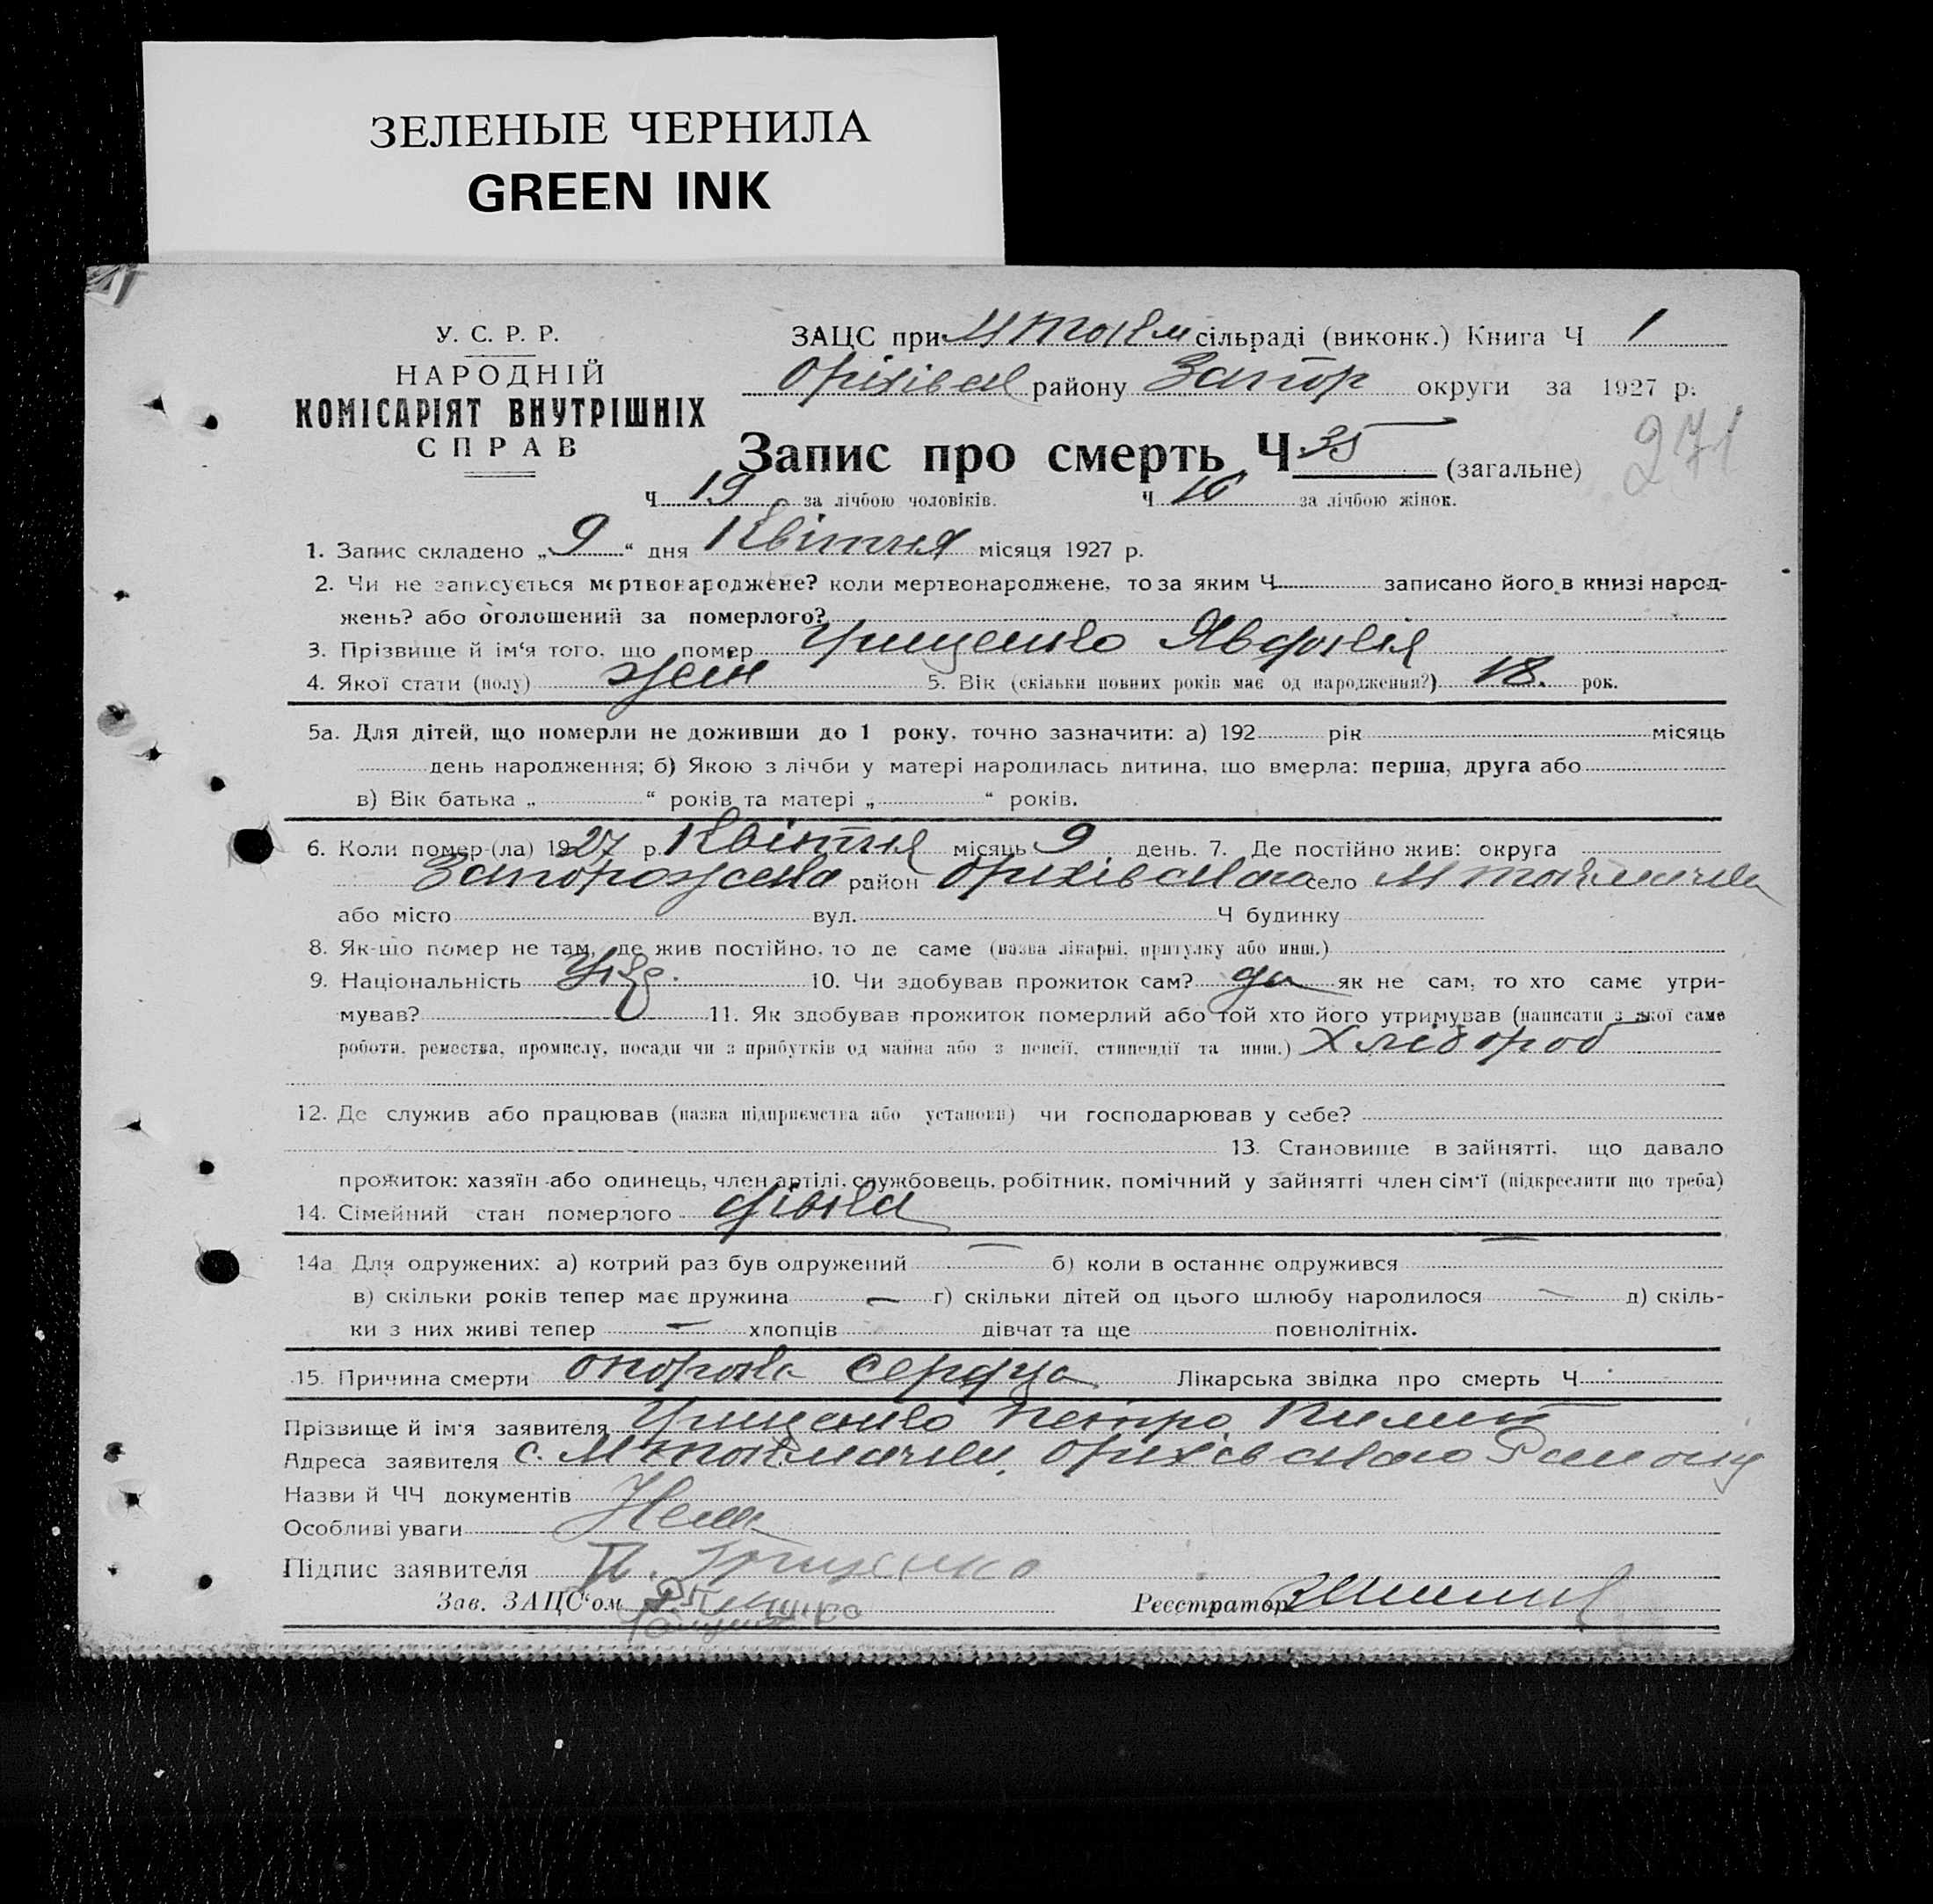 ЗЕЛЕНЫЕ ЧЕРНИЛА
GREEN INK
У. С. Р. Р.
НАРОДНІЙ
КОМІСАРІЯТ ВНУТРІШНІХ
СПРАВ
ЗАЦС при М Токм сільраді (виконк.) Книга Ч 1
Оріхівськ району Запор округи за 1927 р.
271
Запис про смерть Ч 35 (загальне)
Ч 19 за лічбою чоловіків. Ч 16 за лічбою жінок.
1. Запис складено „9“ дня Квітня місяця 1927 р.
2. Чи не записується мертвонароджене? коли мертвонароджене, то за яким Ч записано його в книзі народ-
жень? або оголошений за померлого?
3. Прізвище й ім‘я того, що помер Грищенко Явдокія
4. Якої стати (полу) жен 5. Вік (скільки повних років має од народження?) 18. рок.
5а. Для дітей, що померли не доживши до 1 року, точно зазначити: а) 192 рік місяць
день народження; б) Якою з лічби у матері народилась дитина, що вмерла: перша, друга або
в) Вік батька „ “ років та матері „ “ років.
6. Коли помер-(ла) 1927 р. Квітня місяць 9 день. 7. Де постійно жив: округа
Запорожська район Оріхівського село М Токмачка
або місто вул. Ч будинку
8. Як-що помер не там, де жив постійно, то де саме (назва лікарні, притулку або инш.)
9. Національність Укр. 10. Чи здобував прожиток сам? да як не сам, то хто саме утри-
мував? 11. Як здобував прожиток померлий або той хто його утримував (написати з якої саме
роботи, ремества, промислу, посади чи з прибутків од майна або з пенсії, стипендії та инш.) Хлібороб
12. Де служив або працював (назва підприємства або установи) чи господарював у себе?
13. Становище в зайнятті, що давало
прожиток: хазяїн або одинець, член артілі, службовець, робітник, помічний у зайнятті член сім‘ї (підкреслити що треба)
14. Сімейний стан померлого дівка
14а Для одружених: а) котрий раз був одружений — б) коли в останнє одружився —
в) скільки років тепер має дружина — г) скільки дітей од цього шлюбу народилося — д) скіль-
ки з них живі тепер — хлопців дівчат та ще повнолітніх.
15. Причина смерти сердца Лікарська звідка про смерть Ч
Прізвище й ім‘я заявителя Грищенко Петро
Адреса заявителя с. М Токмачка, Оріхівського Району
Назви й ЧЧ документів
Особливі уваги Нема
Підпис заявителя П. Грищенко
Зав. ЗАЦС‘ом
Реєстратор